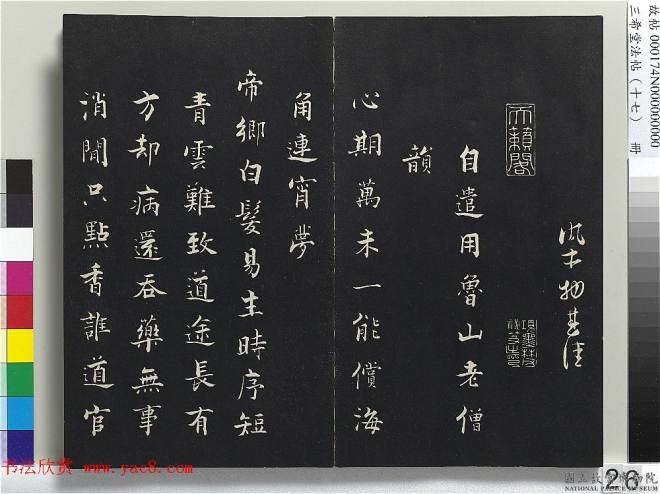 故帖000174N000000000
三希堂法帖(十七) 冊
風土物甚佳
天籟閣
自遣用魯山老僧
韻
心期萬未一能償海
角連宵夢
帝鄉白髮易生時序短
青雲難致道途長有
方却病還吞藥無事
消閒只點香誰道官
书法欣赏 www.yac8.com
國立故宮博物院
NATIONAL PALACE MUSEUM
26